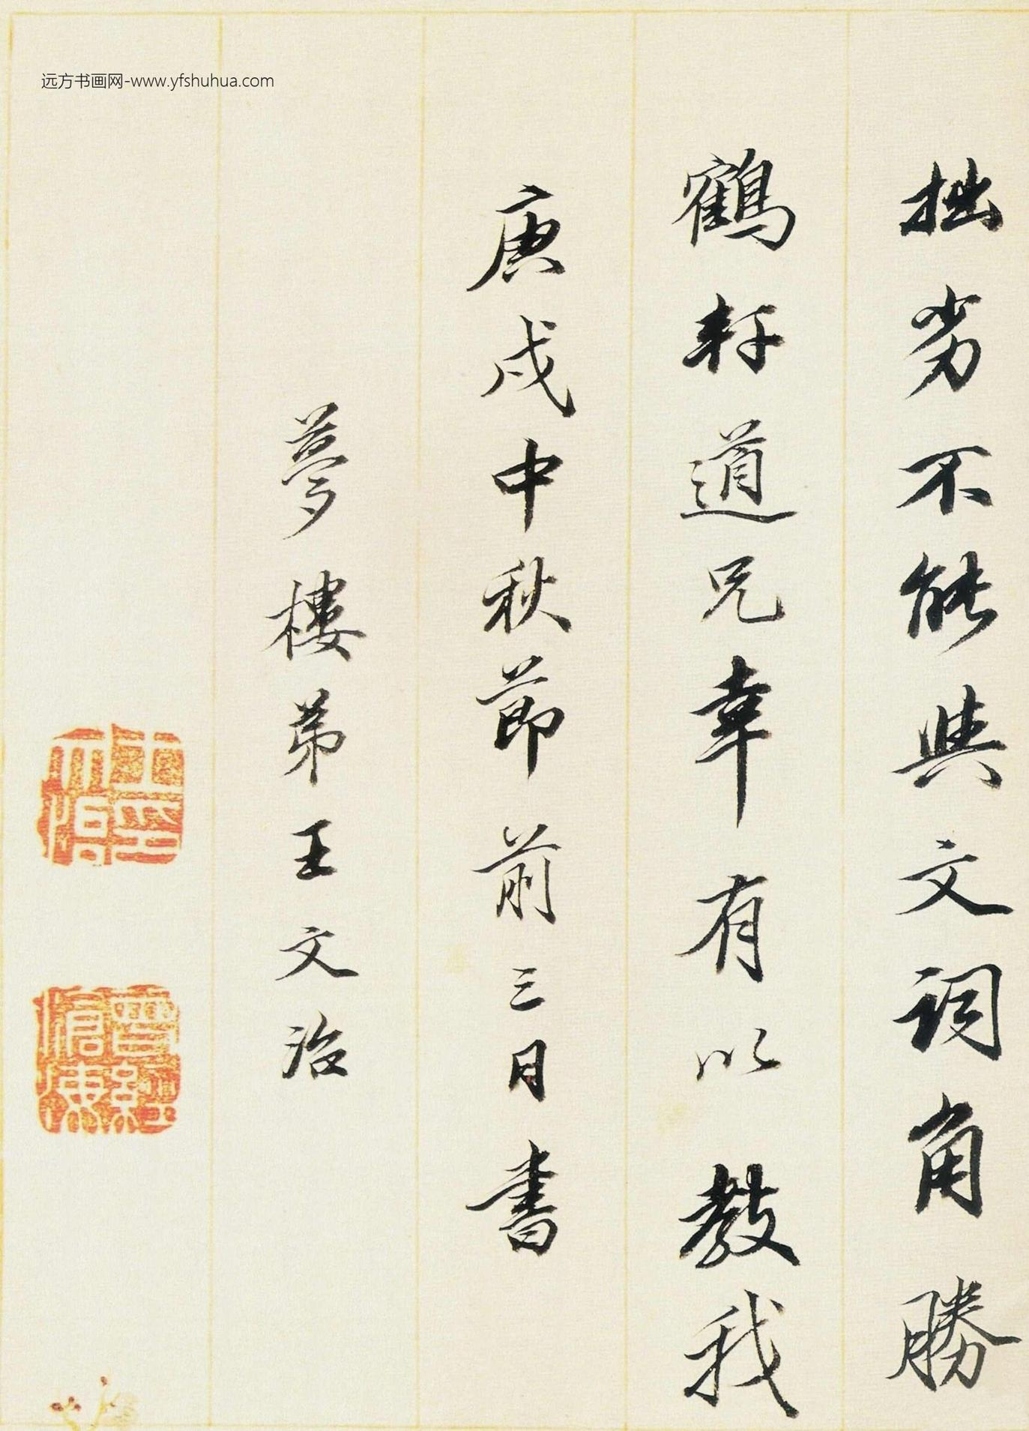 远方书画网-www.yfshuhua.com
拙劣不能與文词角勝
鶴軒道兄幸有以教我
庚戌中秋節前三日書
夢樓弟王文治